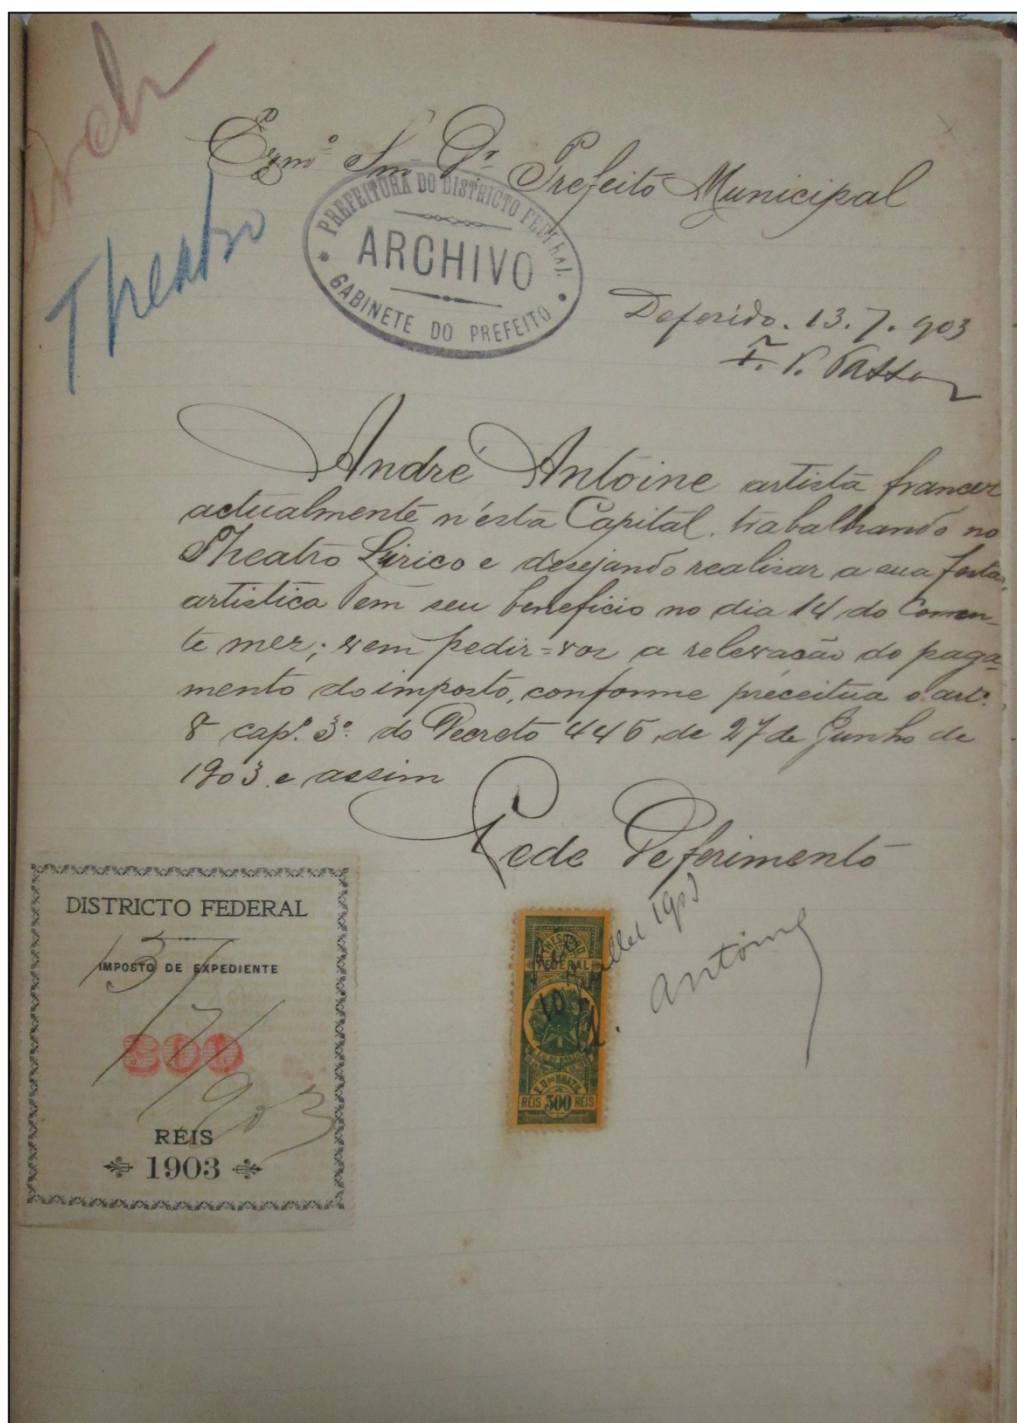 Arch
Theatro
Exmº Snr Dr Prefeito Municipal
PREFEITURA DO DISTRICTO FEDERAL
ARCHIVO
GABINETE DO PREFEITO
Deferido. 13. 7. 903
F. P. Passos
André Antoine artista francez
actualmente n'esta Capital, trabalhando no
Theatro Lirico e desejando realisar a sua festa
artistica em seu beneficio no dia 14 do Corren-
te mez; vem pedir=vos a relevacão do paga-
mento do imposto, conforme preceitua o artº.
8 capº. 3º. do Decreto 445, de 27 de Junho de
1903. e assim
Pede Deferimento
DISTRICTO FEDERAL
IMPOSTO DE EXPEDIENTE
13/7/903
300
REIS
1903
THESOURO
FEDERAL
Rio
10 Juillet 1903
A. Antoine
E. U. DO BRAZIL
REIS 300 REIS